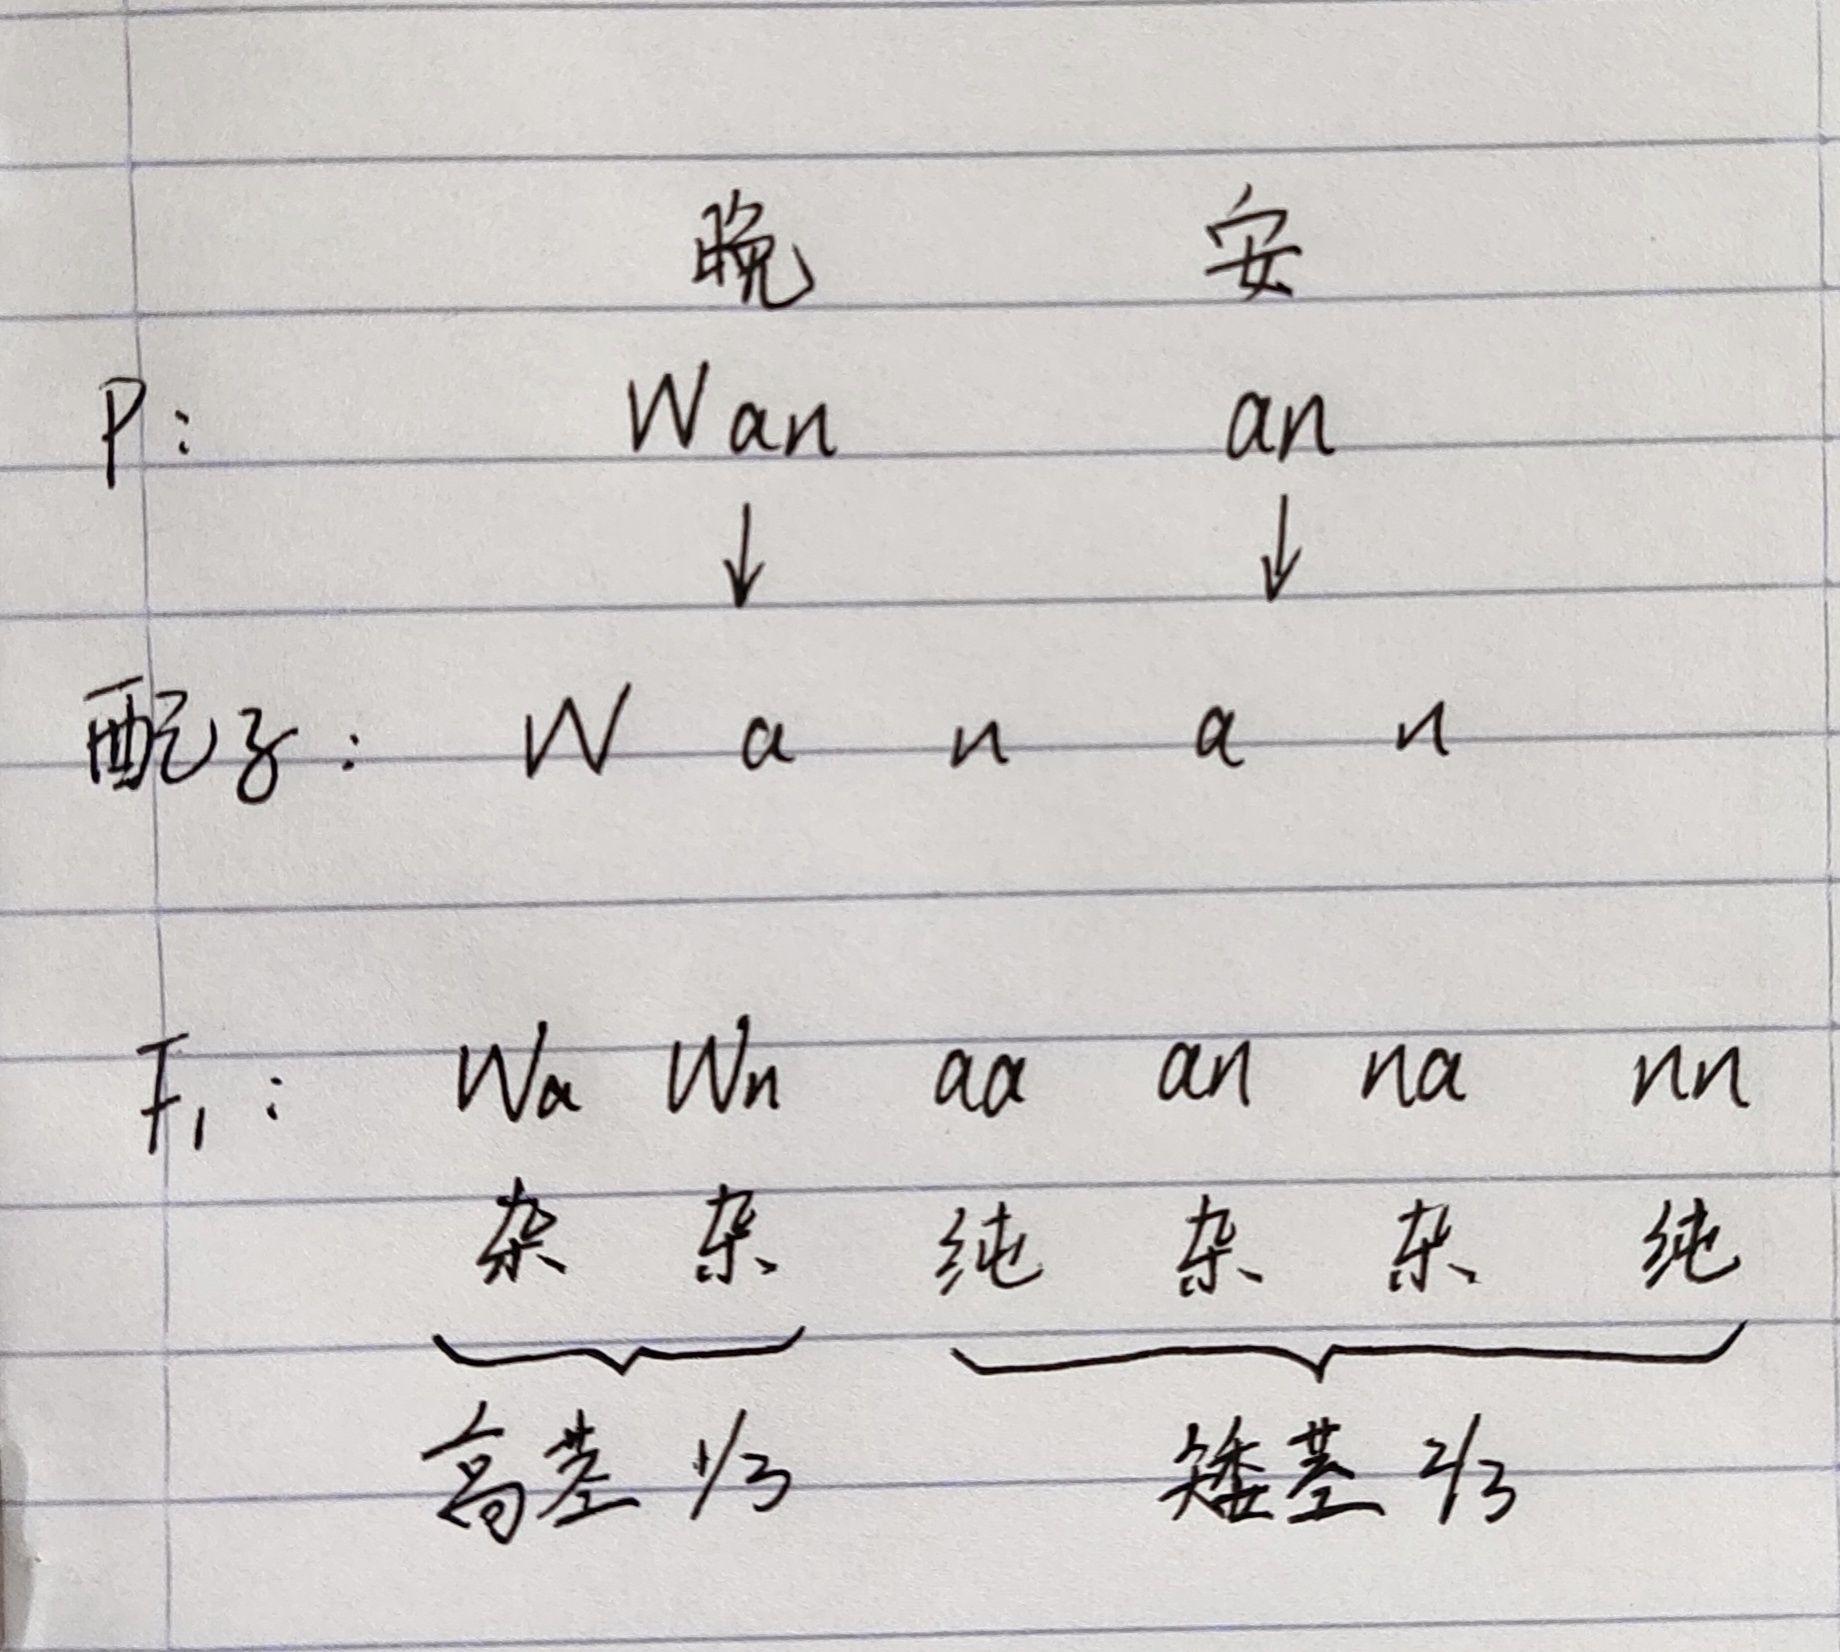 晚 安
P: Wan an
↓ ↓
配子: W a n a n
F₁: Wa Wn aa an na nn
杂 杂 纯 杂 杂 纯
高茎 1/3 矮茎 2/3